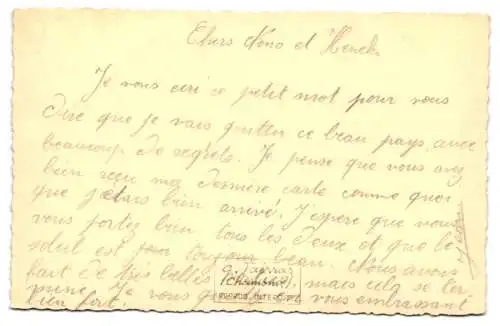 Chers Nono et Henek
Je vous écri ce petit mot pour vous
dire que je vais quitter ce beau pays avec
beaucoup de regrets. Je pense que vous avez
bien reçu ma dernière carte comme quoi
que j'étais bien arrivé. J'espère que vous
vous portez bien tous les deux et que le
soleil est toujours beau. Nous avons
fait de très belles mais cela se ter
mine. Je vous en vous embrassant
bien fort.